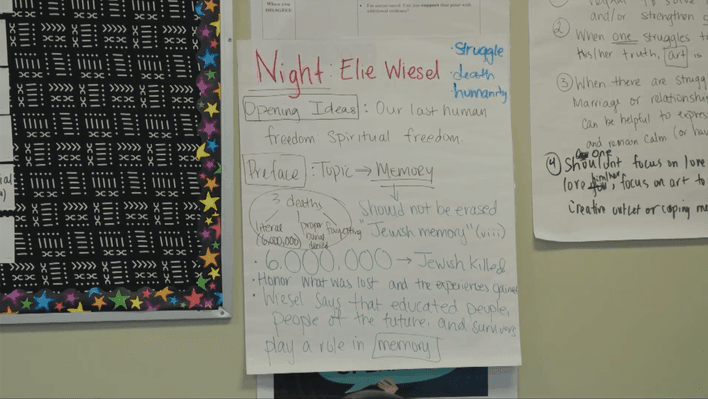 When you
DISAGREED
Night: Elie Wiesel
·struggle
·death
·humanity
Opening Ideas: Our last human
freedom Spiritual freedom.
Preface: Topic → MEMORY
3 deaths
literal
(6,000,000)
proper
burial
denied
forgetting
Should not be erased
"Jewish memory" (viii)
· 6,000,000 → Jewish killed
· Honor what was lost and the experiences
· Wiesel says that educated people,
people of the future, and survivors
play a role in memory
and/or strengthen
② When one struggles
his/her truth, art is
③ When there are
Marriage or relationship
can be helpful to
and remain calm (or
④ One
Shouldn't focus on love
love, focus on art to
creative outlet or coping